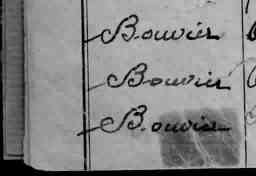 Bouvier
Bouvier
Bouvier